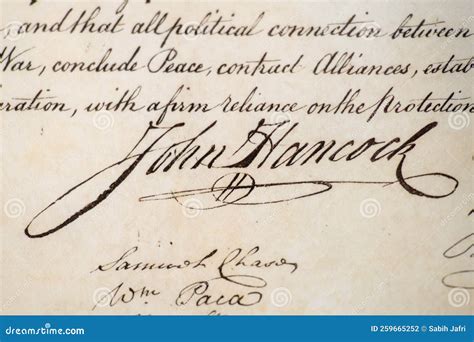 , and that all political connection between
War, conclude Peace, contract Alliances, estab
eration, with a firm reliance on the protection
John Hancock
Samuel Chase
Wm Paca
dreamstime.com
ID 259665252 © Sabih Jafri